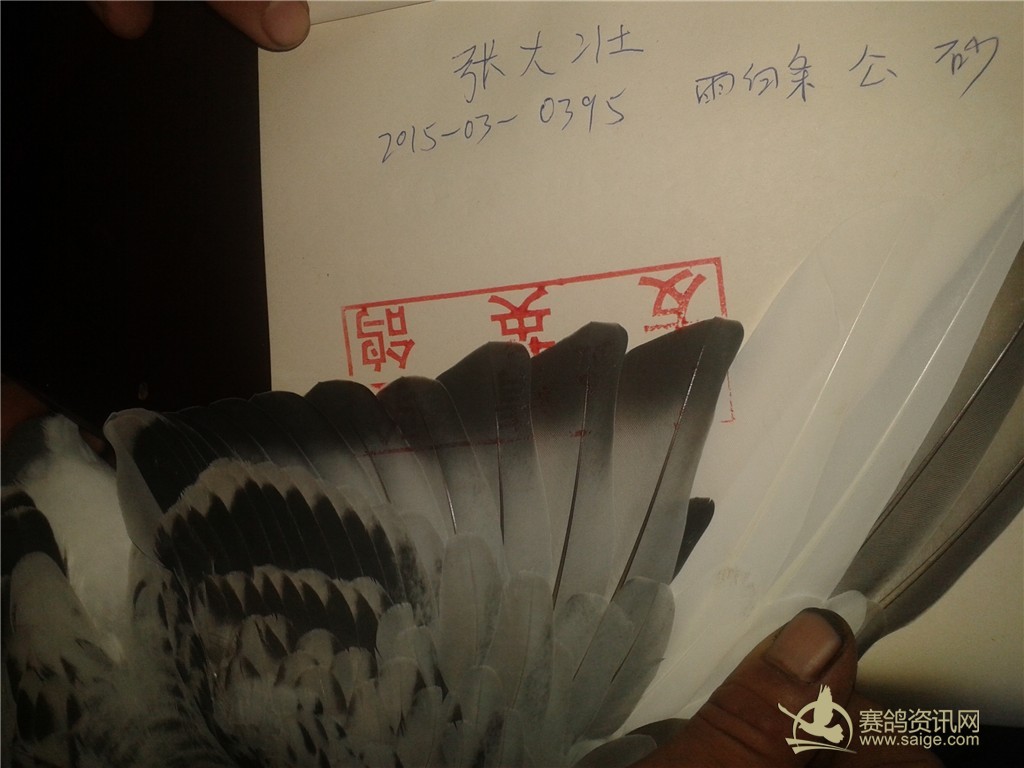 张大壮
2015-03-0395
雨白条 公 砂
友 英 鸽
赛鸽资讯网
www.saige.com